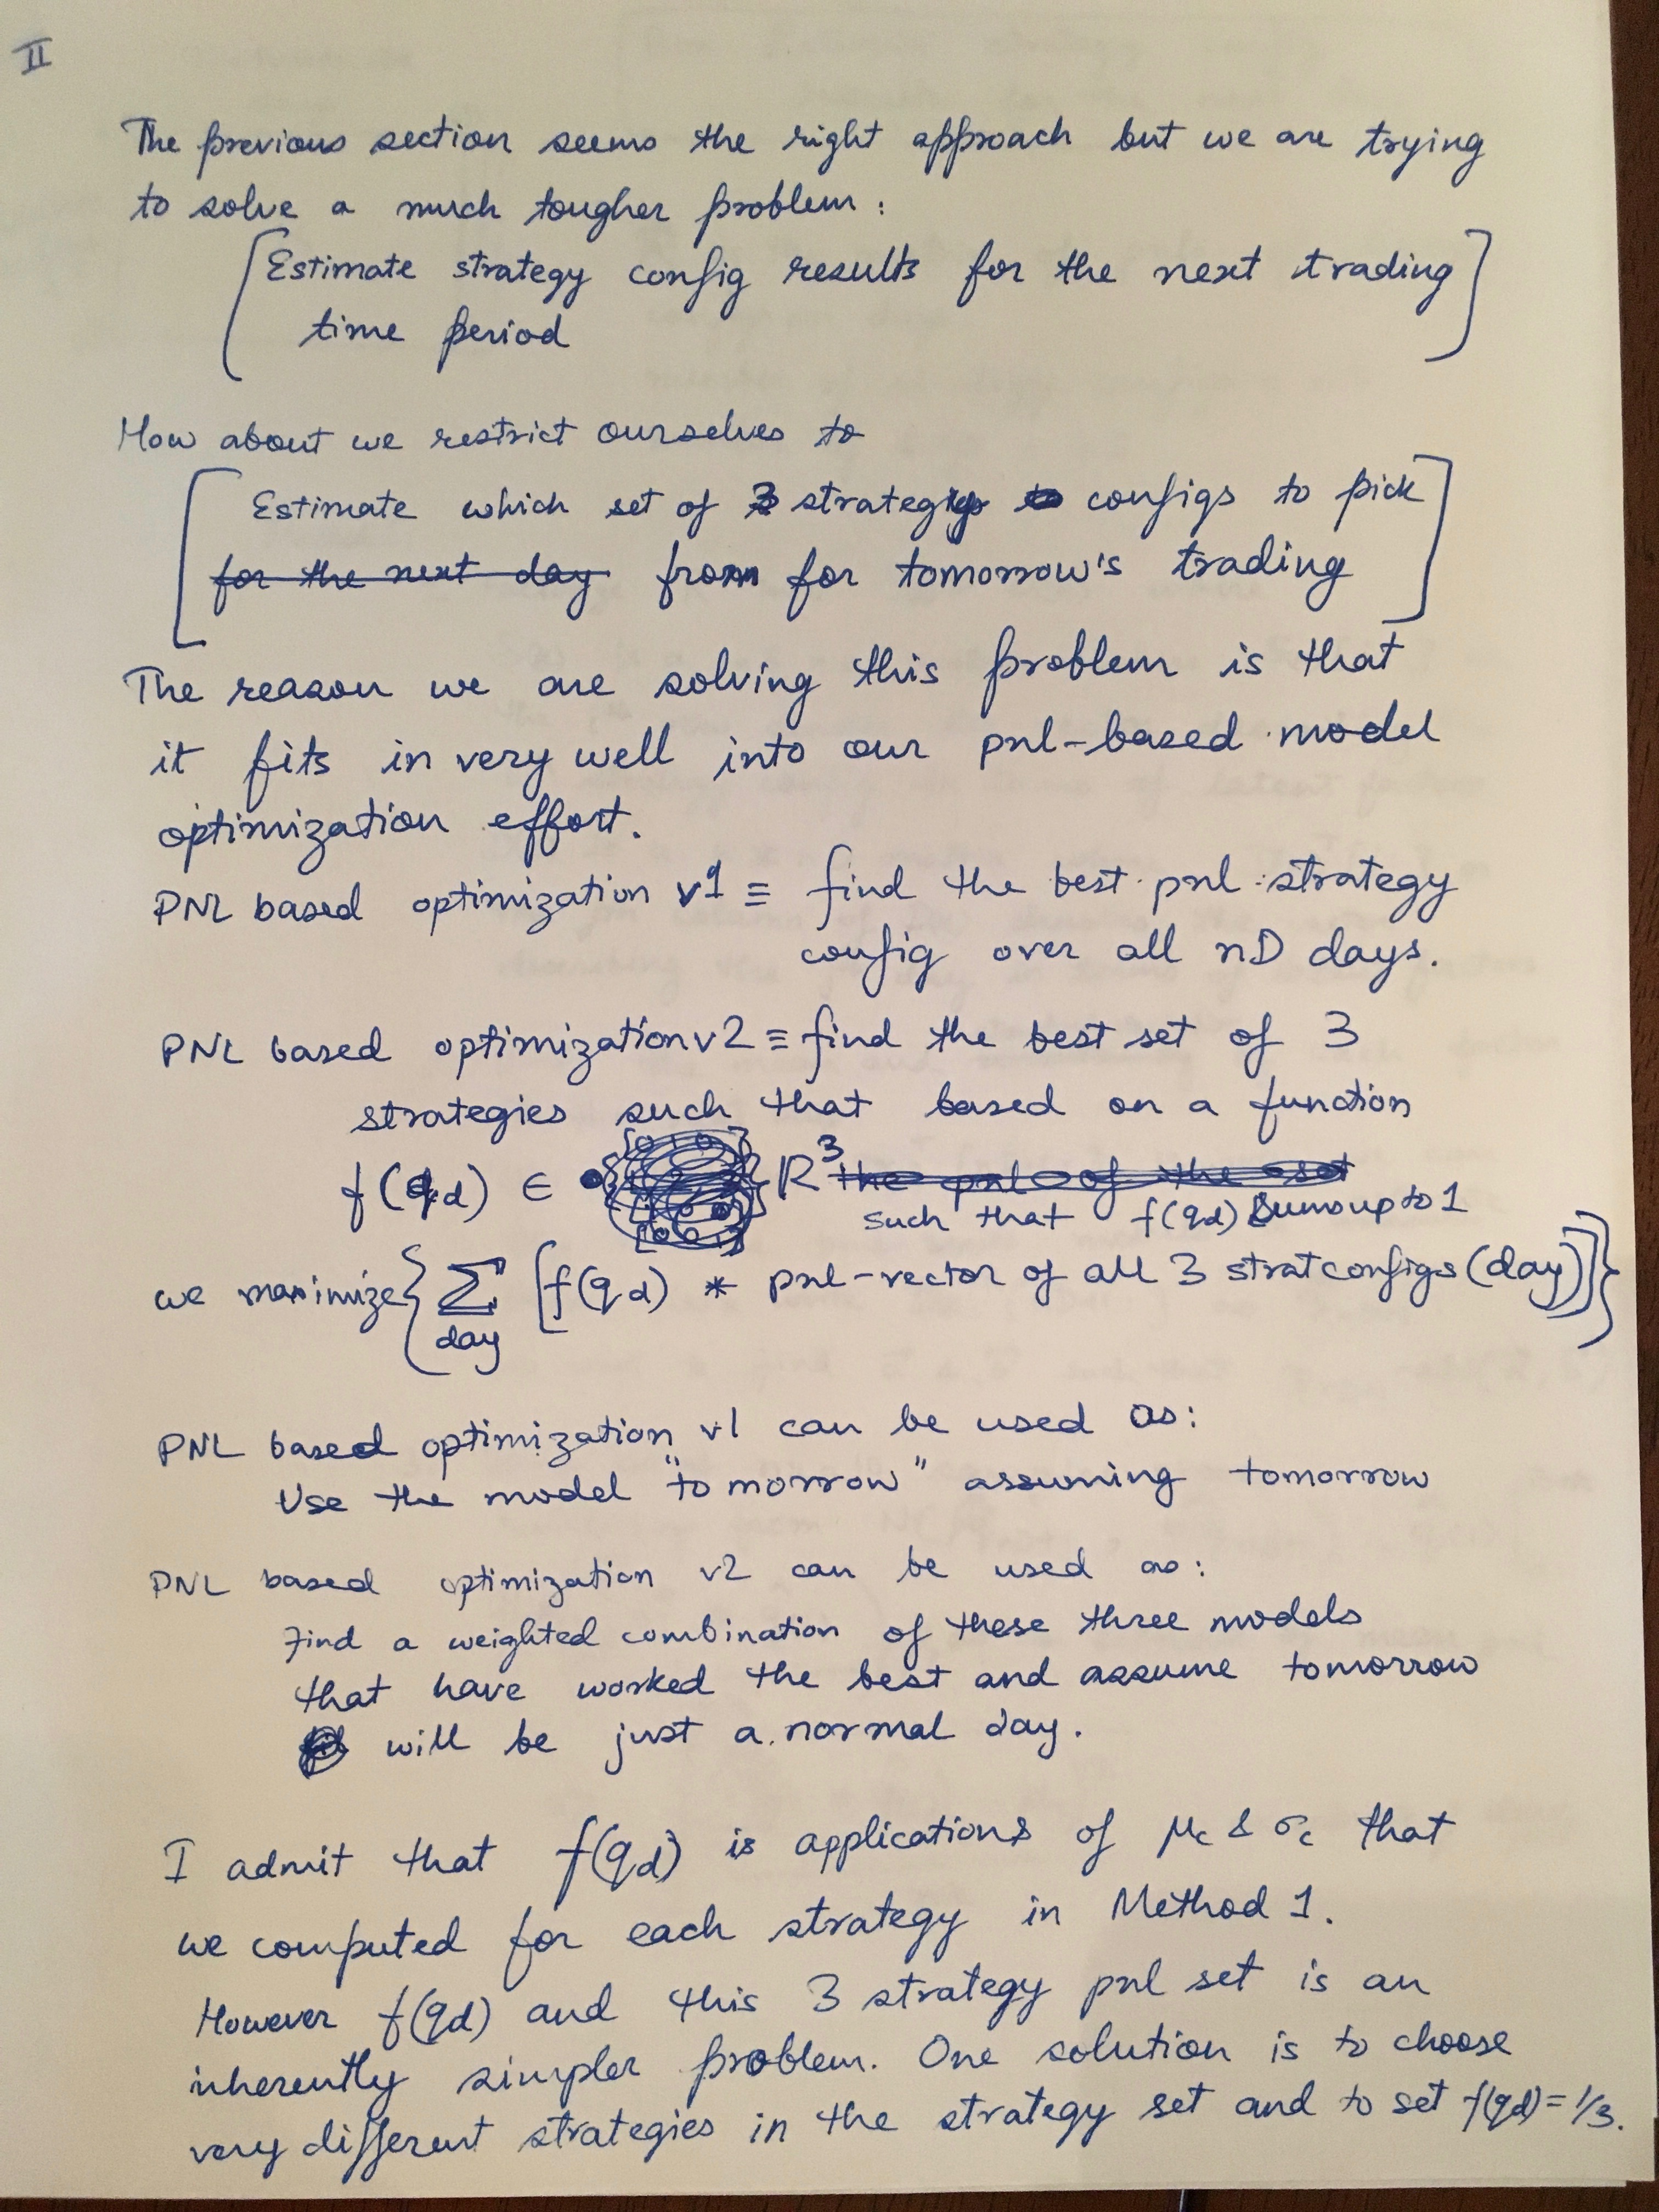 II
The previous section seems the right approach but we are trying
to solve a much tougher problem :
[Estimate strategy config results for the next trading
time period]
How about we restrict ourselves to
[Estimate which set of 3 strategy configs to pick
for the next day from for tomorrow's trading]
The reason we are solving this problem is that
it fits in very well into our pnl-based model
optimization effort.
PNL based optimization v1 ≡ find the best pnl strategy
config over all nD days.
PNL based optimization v2 ≡ find the best set of 3
strategies such that based on a function
f(qd) ∈ R³ the pnl of the set
such that f(qd) sums up to 1
we maximize { Σ [f(qd) * pnl-vector of all 3 strat configs (day)] }
day
PNL based optimization v1 can be used as:
Use the model "tomorrow" assuming tomorrow
PNL based optimization v2 can be used as:
Find a weighted combination of these three models
that have worked the best and assume tomorrow
will be just a normal day.
I admit that f(qd) is applications of μc & σc that
we computed for each strategy in Method 1.
However f(qd) and this 3 strategy pnl set is an
inherently simpler problem. One solution is to choose
very different strategies in the strategy set and to set f(qd) = 1/3.